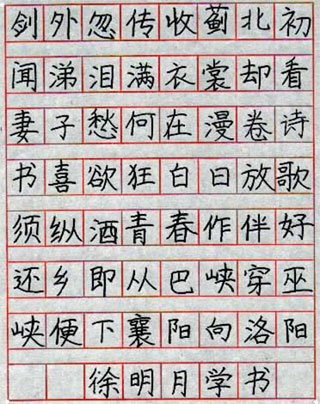 剑外忽传收蓟北初
闻涕泪满衣裳却看
妻子愁何在漫卷诗
书喜欲狂白日放歌
须纵酒青春作伴好
还乡即从巴峡穿巫
峡便下襄阳向洛阳
徐明月学书